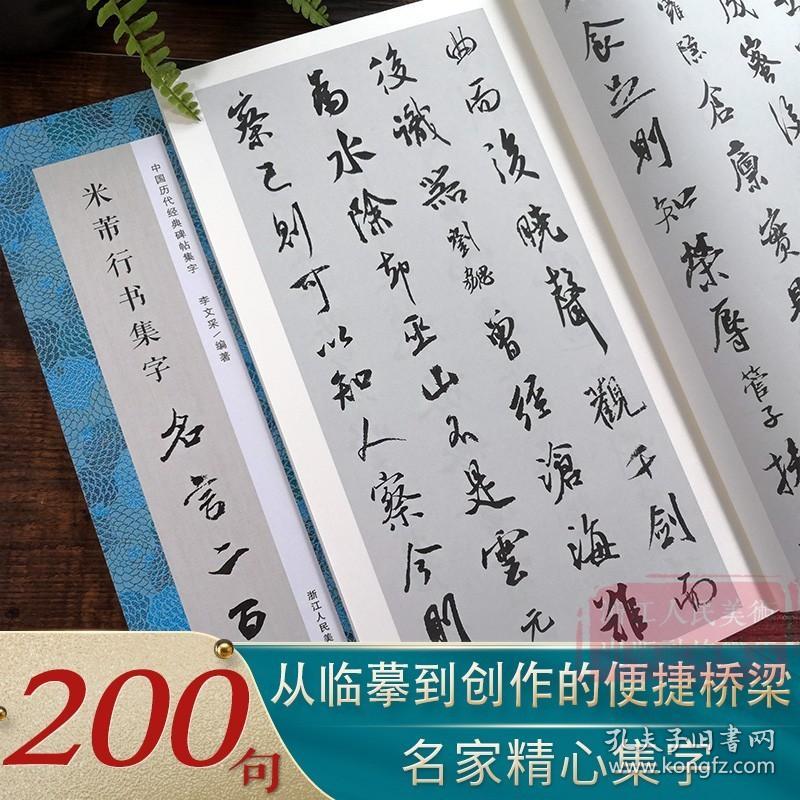 成蜜後
羅隱倉廩實
食足則知榮辱管子扶
曲而後曉聲觀千劍而
後識器劉勰曾經滄海難
為水除却巫山不是雲元
察己則可以知人察今則
中国历代经典碑帖集字 李文采/编著
米芾行书集字
名言二百
浙江人民美
江人民美術
200句
从临摹到创作的便捷桥梁
名家精心集字
孔夫子旧书网
www.kongfz.com